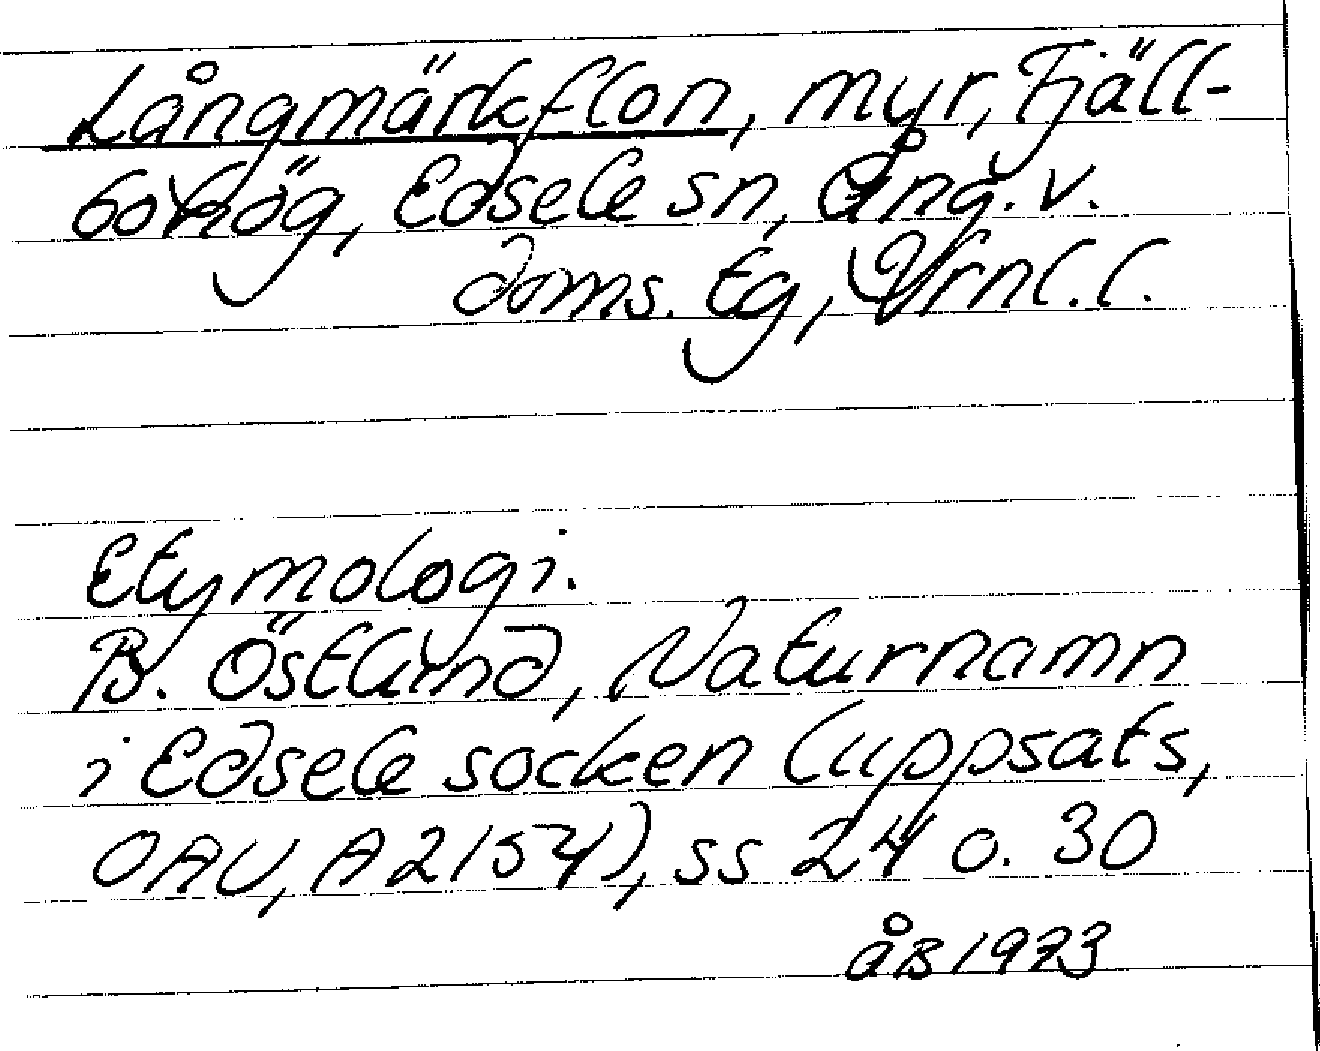 Långmärkflon, myr, Fjäll-
bohög, Edsele sn, Ång. v.
doms. tg, Vrnl. l.
Etymologi.
B. Östlund, Naturnamn
i Edsele socken (uppsats,
OAU, A 2154), ss 24 o. 30
åB 1973